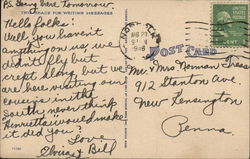 P.S. Going home tomorrow.
THIS SPACE FOR WRITING MESSAGES
Hello folks!
Well, you haven't
anything on us, we
didn't fly but
crept along but we
are here visiting our
cousins in the
south, never think
"Henrietta" would make
it did you?
Love,
Elvira & Bill
POST CARD
Mr. & Mrs Norman
912 Stanton Ave
New Kensington
Penna.